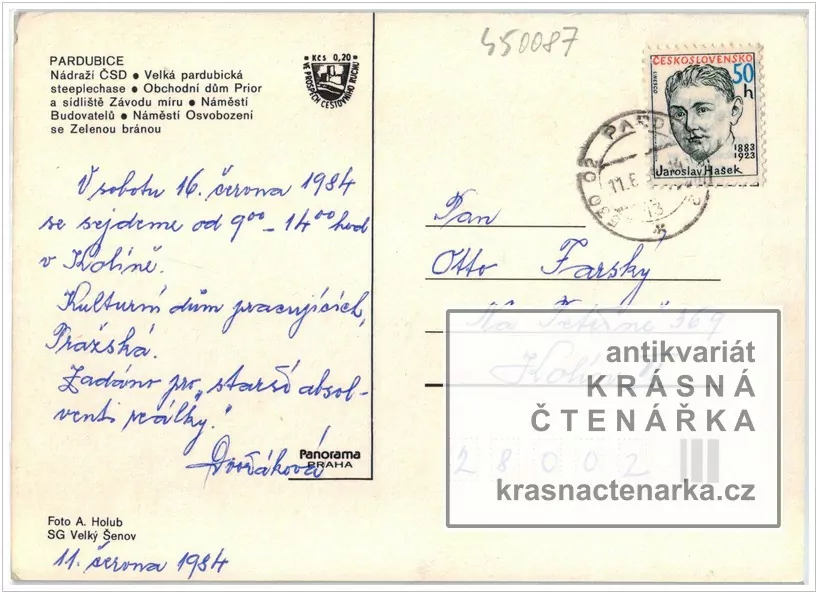 450087
PARDUBICE
Nádraží ČSD ● Velká pardubická
steeplechase ● Obchodní dům Prior
a sídliště Závodu míru ● Náměstí
Budovatelů ● Náměstí Osvobození
se Zelenou bránou
Kčs 0,20
VE PROSPĚCH CESTOVNÍHO RUCHU
ČESKOSLOVENSKO
50
h
UNESCO
1883
1923
Jaroslav Hašek
PARD
02
11.6.
13
V sobotu 16. června 1984
se sejdeme od 9⁰⁰ – 14⁰⁰ hod
v Kolíně.
Kulturní dům pracujících,
Pražská.
Zadáno pro „starší absol-
venti reálky."
Dvořáková
Panorama
PRAHA
Foto A. Holub
SG Velký Šenov
11. června 1984
Pan
Otto Farský
Na 369
Kolín
28002
antikvariát
KRÁSNÁ
ČTENÁŘKA
krasnactenarka.cz